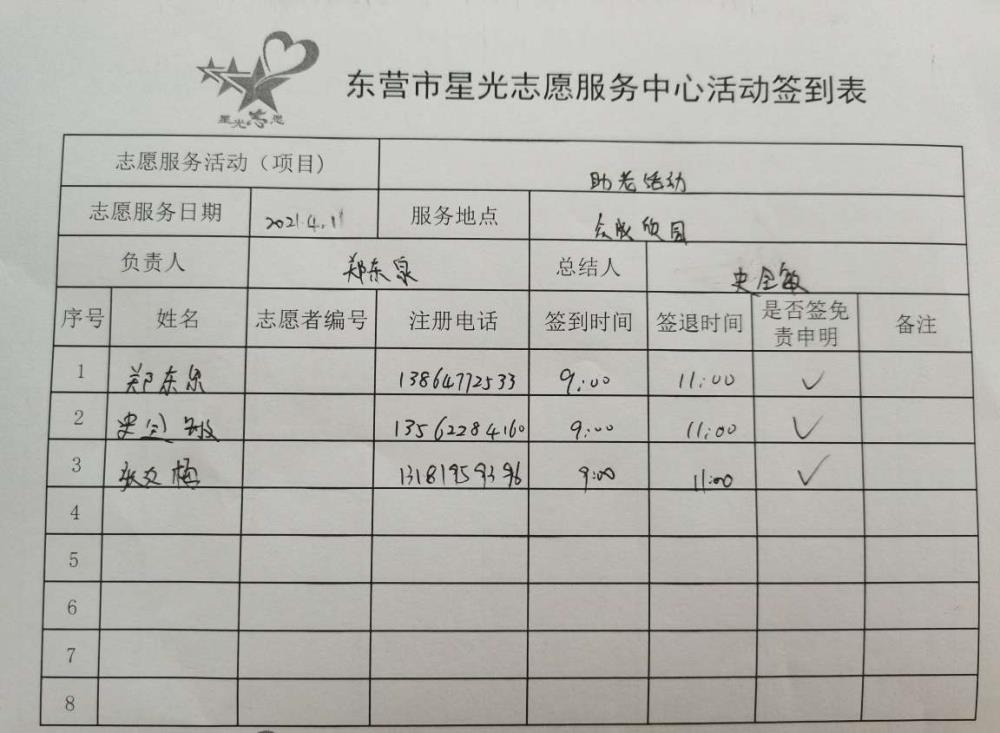 星光志愿
东营市星光志愿服务中心活动签到表
志愿服务活动（项目) 助老活动
志愿服务日期 2021.4.11 服务地点 众成欣园
负责人 郑东泉 总结人 史全敏
序号 姓名 志愿者编号 注册电话 签到时间 签退时间 是否签免责申明 备注
1 郑东泉 13864772533 9:00 11:00 ✓
2 史全敏 13562284160 9:00 11:00 ✓
3 张友梅 13181959396 9:00 11:00 ✓
4
5
6
7
8